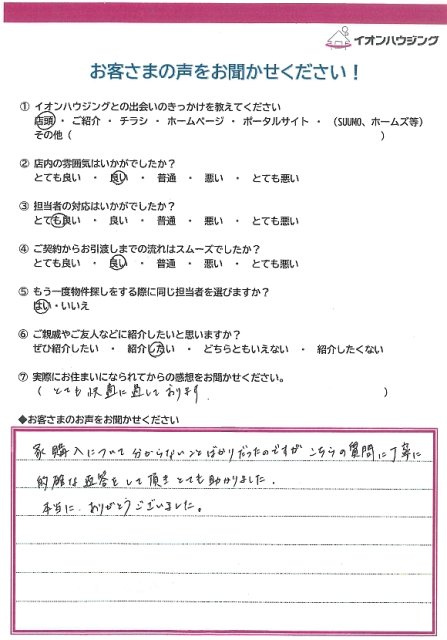 イオンハウジング
お客さまの声をお聞かせください！
① イオンハウジングとの出会いのきっかけを教えてください
店頭 ・ ご紹介 ・ チラシ ・ ホームページ ・ ポータルサイト ・ （SUUMO、ホームズ等）
その他（ ）
② 店内の雰囲気はいかがでしたか？
とても良い ・ 良い ・ 普通 ・ 悪い ・ とても悪い
③ 担当者の対応はいかがでしたか？
とても良い ・ 良い ・ 普通 ・ 悪い ・ とても悪い
④ ご契約からお引渡しまでの流れはスムーズでしたか？
とても良い ・ 良い ・ 普通 ・ 悪い ・ とても悪い
⑤ もう一度物件探しをする際に同じ担当者を選びますか？
はい・いいえ
⑥ ご親戚やご友人などに紹介したいと思いますか？
ぜひ紹介したい ・ 紹介したい ・ どちらともいえない ・ 紹介したくない
⑦ 実際にお住まいになられてからの感想をお聞かせください。
（ とても快適に過しております ）
◆お客さまのお声をお聞かせください
家購入について分からないことばかりだったのですが こちらの質問に丁寧に
的確な返答をして頂き とても助かりました。
本当に ありがとうございました。